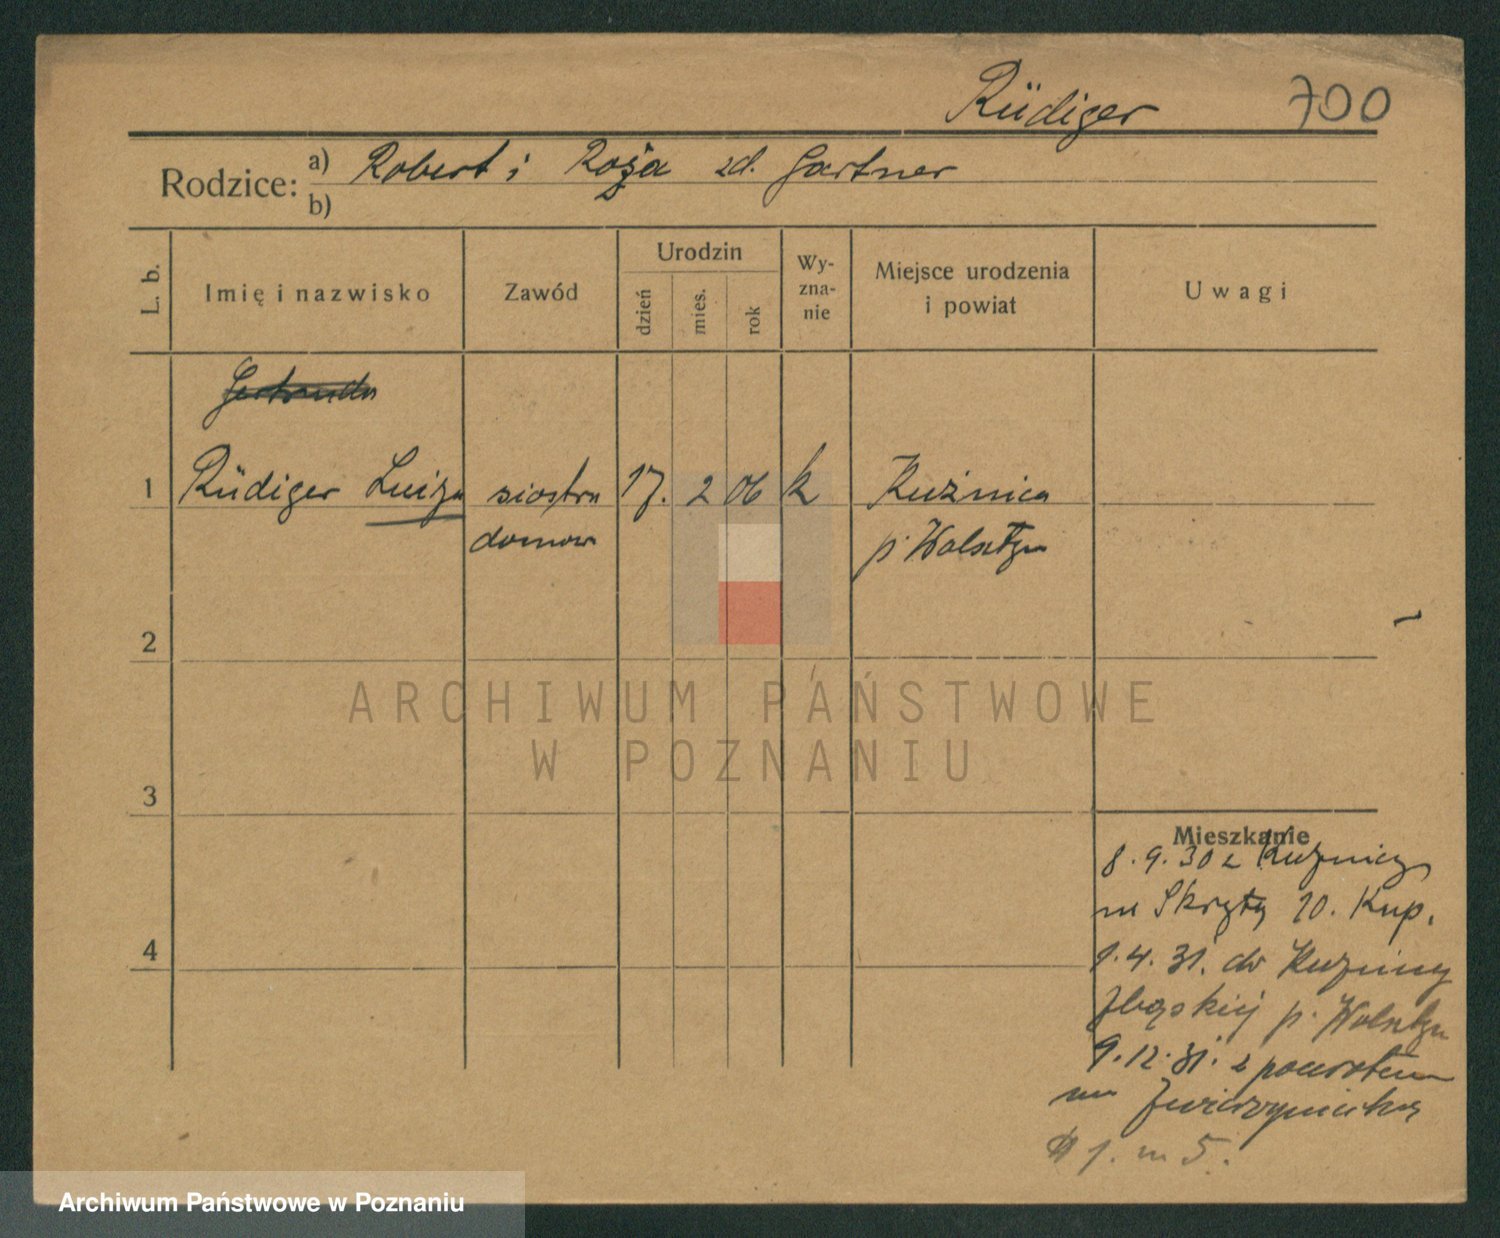 Rüdiger 700
Rodzice: a) Robert i Roża zd. Gartner
b)
L. b. Imię i nazwisko Zawód Urodzin dzień mies. rok Wy-zna-nie Miejsce urodzenia i powiat Uwagi
Gertruda
1 Rüdiger Luiza siostra 17. 2 06 k Kuźnica
domow p. Wolsztyn
2
ARCHIWUM PAŃSTWOWE
W POZNANIU
3
Mieszkanie
8. 9. 30 z Kuźnicy
4
na Skrytą 10. Kup.
1. 4. 31. do Kuźnicy
Zbąskiej p. Wolsztyn
9. 12. 31. z powrotem
na Zwierzyniecką
1. m 5.
Archiwum Państwowe w Poznaniu